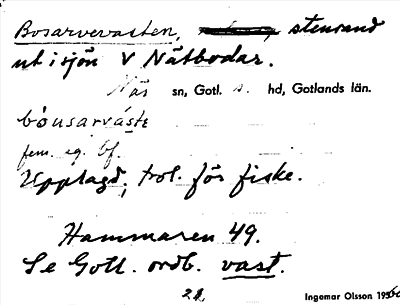 Bosarvevasten, stenrand
ut i sjön V Nätbodar.
När sn, Gotl. s. hd, Gotlands län.
bóusarváste
fem. eg. bf.
Upplagd, trol. för fiske.
Hammaren 49.
Se Gotl. ordb. vast.
Ingemar Olsson 1956